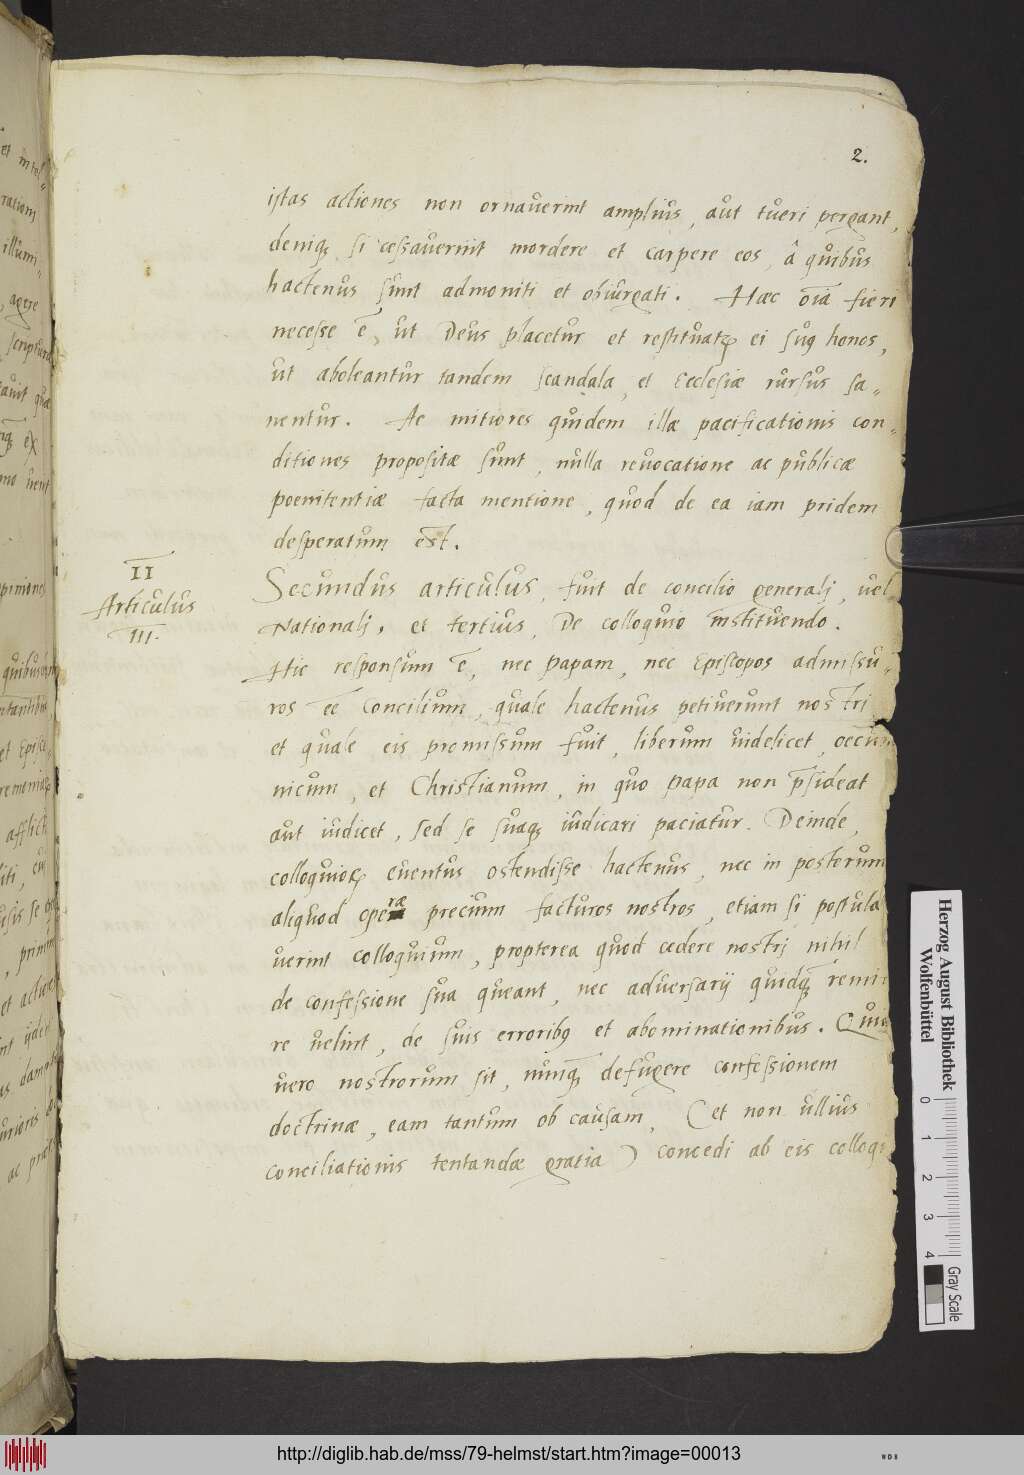 2.
istas actiones non ornauerint amplius, aut tueri pergant,
deniq; si cessauerint mordere et carpere eos, â quibus
hactenus sunt admoniti et obiurgati. Haec oīa fieri
necesse ē, ut Deus placetur et restituatꝛ ei suꝰ honos,
ut aboleantur tandem scandala, et Ecclesiæ rursus sa„
nentur. Ac mitiores quidem illæ pacificationis con„
ditiones propositæ sunt, nulla reuocatione ac publicæ
poenitentiæ facta mentione, quod de ea iam pridem
desperatum est.
II
Articulus
III.
Secundus articulus, fuit de concilio generalj, uel
Nationalj, et tertius, De colloquio instituendo.
Hic responsum ē, nec papam, nec Episcopos admissu„
ros eē Concilium, quale hactenus petiuerunt nostri
et quale eis promissum fuit, liberum uidelicet, oecu
nicum, et Christianum, in quo papa non p̄sideat
aut iudicet, sed se suaq; iudicari paciatur. Deinde,
colloquioꝝ euentus ostendisse hactenus, nec in posterum
aliquod operæ precium facturos nostros, etiam si postula
uerint colloquium, propterea quod cedere nostrj nihil
de confessione sua queant, nec aduersarij quidq̄
re uelint, de suis erroribꝰ et abominationibus.
uero nostrorum sit, nunq̄ defugere confessionem
doctrinæ, eam tantum ob causam, (et non ullius
conciliationis tentandæ gratia) concedi ab eis colloq
Herzog August Bibliothek
Wolfenbüttel
0 1 2 3 4
Gray Scale
http://diglib.hab.de/mss/79-helmst/start.htm?image=00013